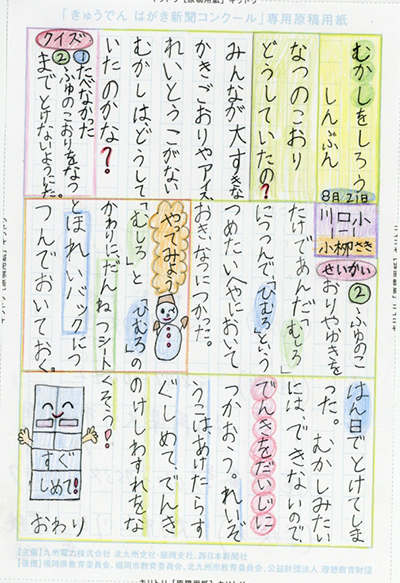 キリトリ【原稿用紙】キリトリ
「きゅうでん はがき新聞コンクール」専用原稿用紙
むかしをしろう
しんぶん
8月21日
川口小
1-1
小柳さき
なつのこおり
どうしていたの?
みんなが大すきな
かきごおりやアイス。
れいとうこがない
むかしは、どうして
いたのかな?
クイズ
①たべなかった
②ふゆのこおりをなつ
までとけないようにした。
せいかい
②ふゆのこ
おりやゆきを
たけであんだ「むしろ」
につつんで「ひむろ」という
つめたいへやにおいて
おき、なつにつかった。
やってみよう
「むしろ」と「ひむろ」の
かわりに、だんねつシート
とほれいバックにつ
つんでおいておく。
はん日でとけてしま
った。むかしみたい
には、できないので、
でんきをだいじに
つかおう。れいぞ
うこは、あけたらす
ぐしめて、でんき
のけしわすれをな
くそう!
すぐ
しめて!
おわり
【主催】九州電力株式会社 北九州支社・福岡支社、西日本新聞社
【後援】福岡県教育委員会、福岡市教育委員会、北九州市教育委員会、公益財団法人 理想教育財団
キリトリ【原稿用紙】キリトリ